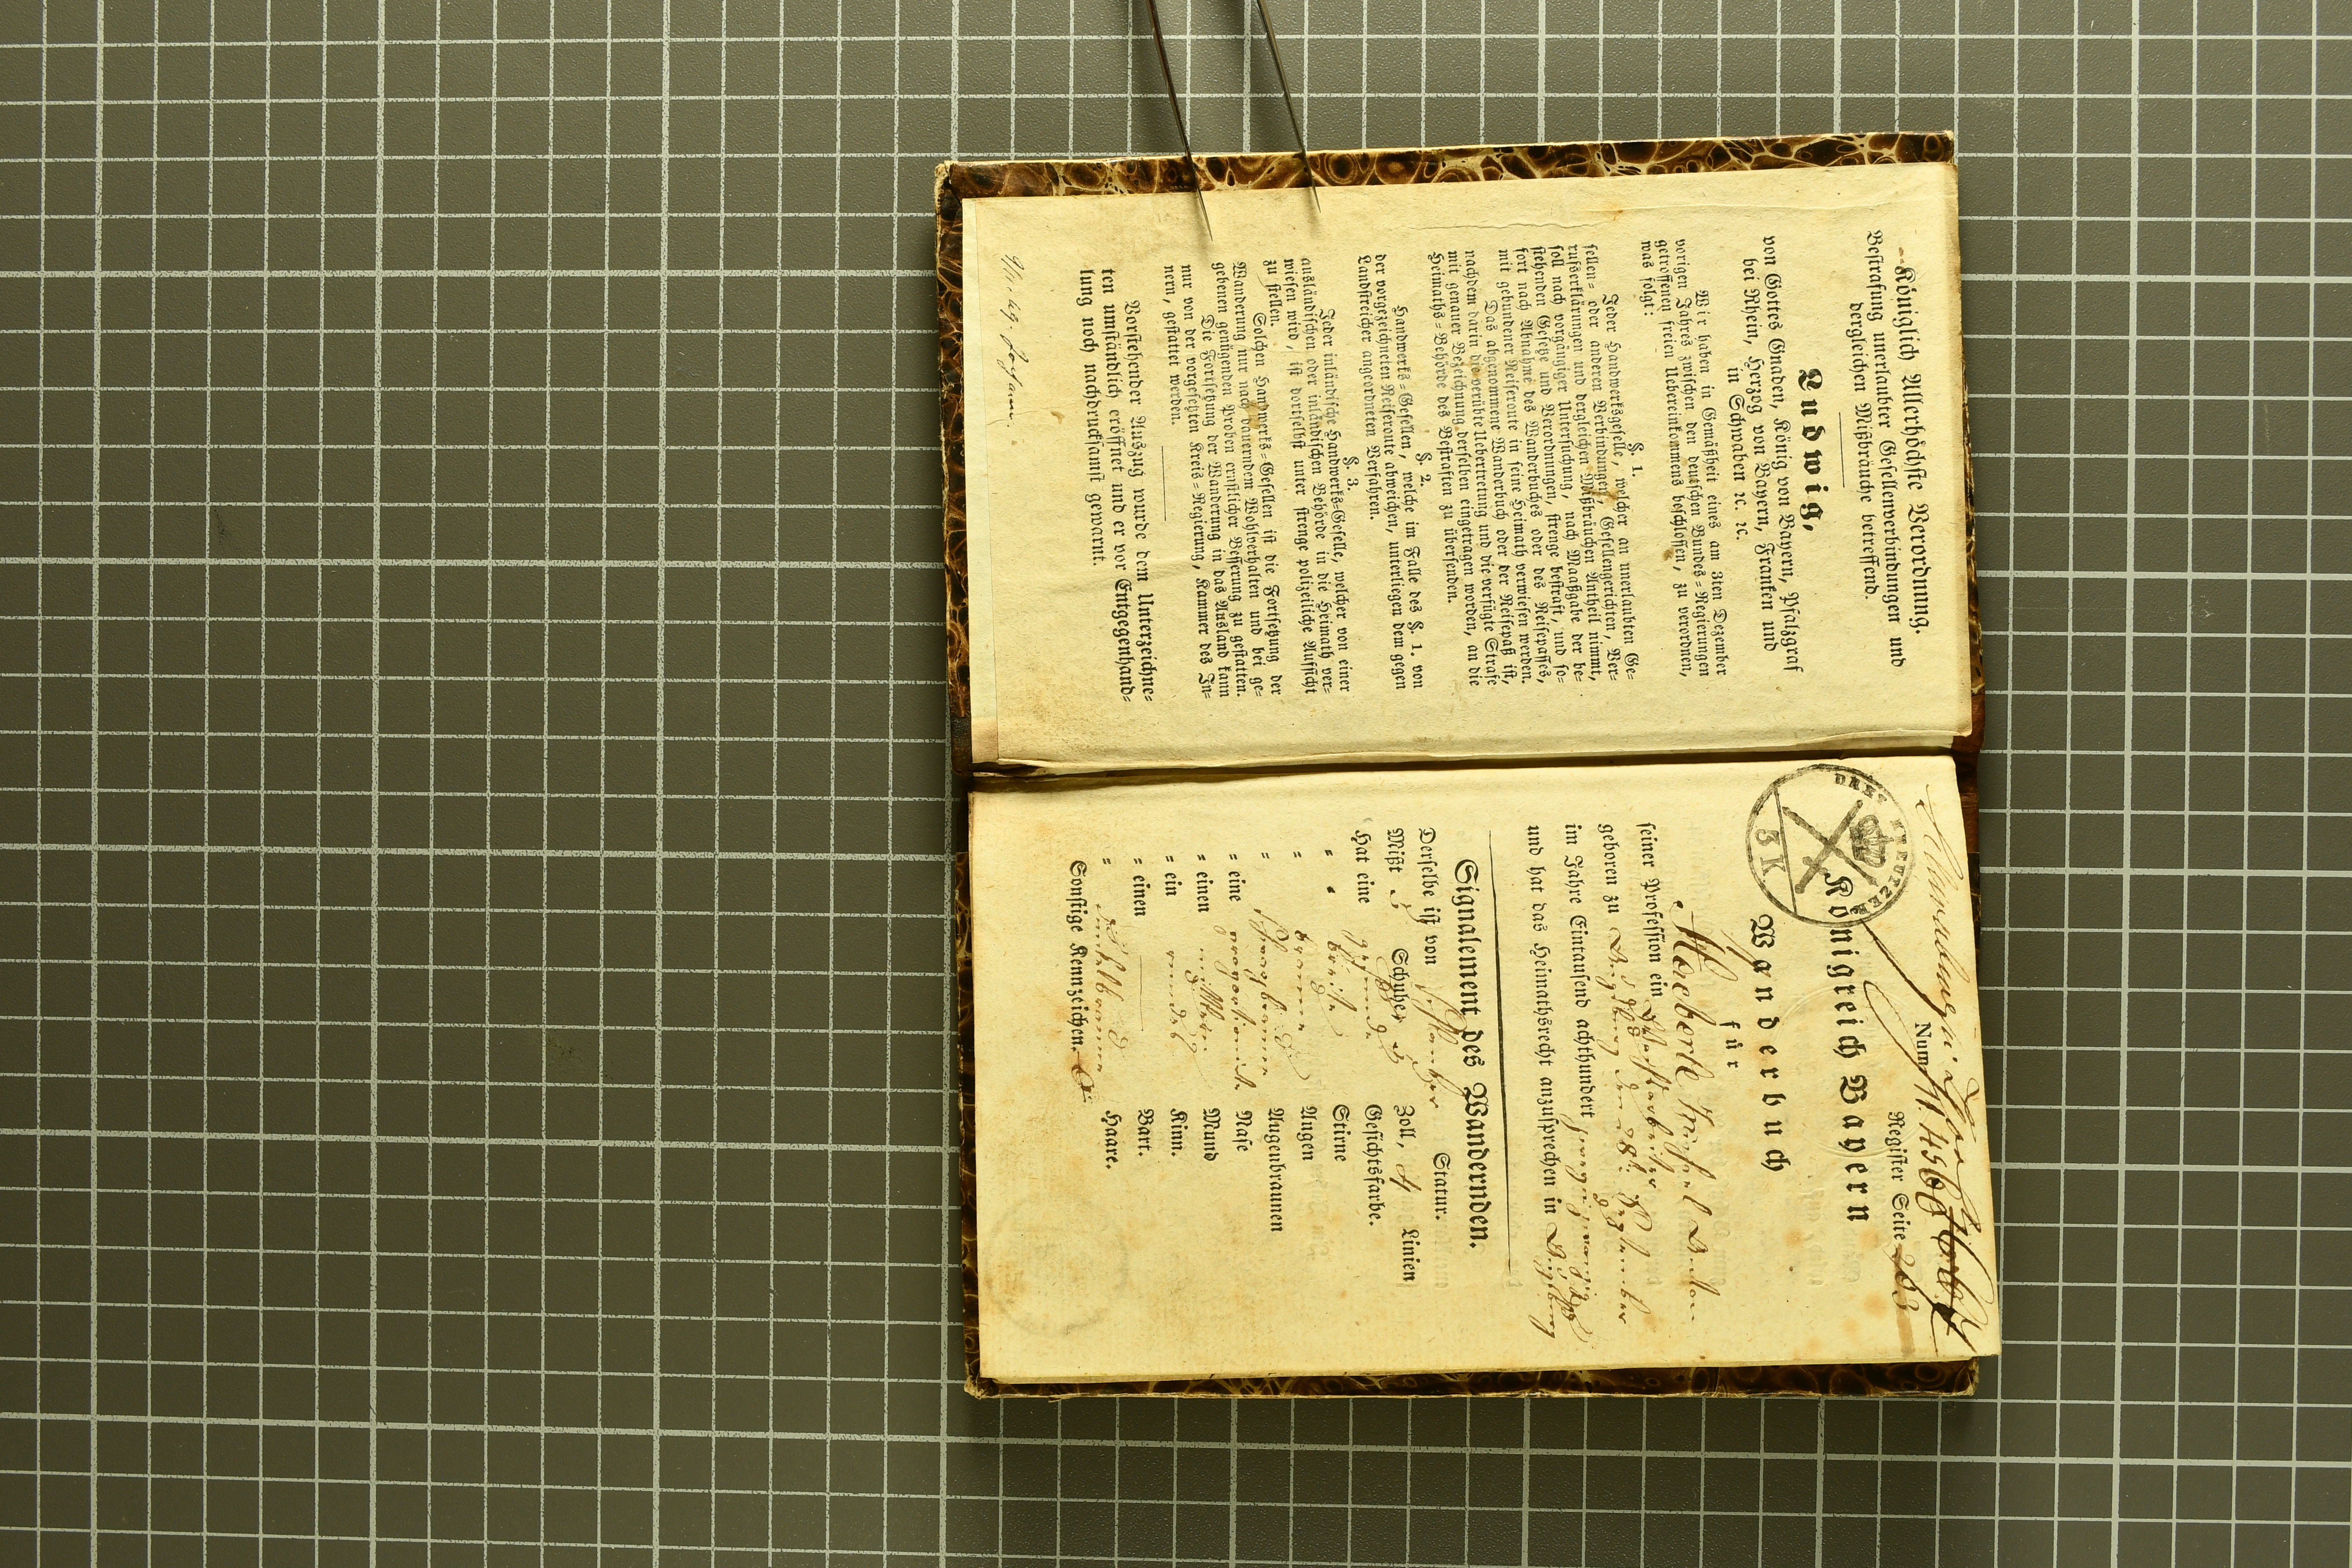 Königlich Allerhöchste Verordnung.
Bestrafung unerlaubter Gesellenverbindungen und
dergleichen Mißbräuche betreffend.
Ludwig,
von Gottes Gnaden, König von Bayern, Pfalzgraf
bei Rhein, Herzog von Bayern, Franken und
in Schwaben ꝛc. ꝛc.
Wir haben in Gemäßheit eines am 3ten Dezember
vorigen Jahres zwischen den deutschen Bundes=Regierungen
getroffenen freien Uebereinkommens beschlossen, zu verordnen,
was folgt:
§. 1.
Jeder Handwerksgeselle, welcher an unerlaubten Ge=
sellen= oder anderen Verbindungen, Gesellengerichten, Ver=
rufserklärungen und dergleichen Mißbräuchen Antheil nimmt,
soll nach vorgängiger Untersuchung, nach Maaßgabe der be=
stehenden Gesetze und Verordnungen, strenge bestraft, und so=
fort nach Abnahme des Wanderbuches oder des Reisepasses,
mit gebundener Reiseroute in seine Heimath verwiesen werden.
Das abgenommene Wanderbuch oder der Reisepaß ist,
nachdem darin die verübte Uebertretung und die verfügte Strafe
mit genauer Bezeichnung derselben eingetragen worden, an die
Heimaths=Behörde des Bestraften zu übersenden.
§. 2.
Handwerks=Gesellen, welche im Falle des §. 1. von
der vorgezeichneten Reiseroute abweichen, unterliegen dem gegen
Landstreicher angeordneten Verfahren.
§. 3.
Jeder inländische Handwerks=Geselle, welcher von einer
ausländischen oder inländischen Behörde in die Heimath ver=
wiesen wird, ist dortselbst unter strenge polizeiliche Aufsicht
zu stellen.
Solchen Handwerks=Gesellen ist die Fortsetzung der
Wanderung nur nach dauerndem Wohlverhalten und bei ge=
gebenen genügenden Proben ernstlicher Besserung zu gestatten.
Die Fortsetzung der Wanderung in das Ausland kann
nur von der vorgesetzten Kreis=Regierung, Kammer des In=
nern, gestattet werden.
Vorstehender Auszug wurde dem Unterzeichne=
ten umständlich eröffnet und er vor Entgegenhand=
lung noch nachdrucksamst gewarnt.
Num.
Register Seite 283
DREI KREUTZER
3 K
Königreich Bayern
Wanderbuch
für
seiner Profession ein
geboren zu Augsburg den
in Jahre Eintausend achthundert
und hat das Heimathsrecht anzusprechen in Augsburg
Signalement des Wandernden.
Derselbe ist von schlanker Statur.
Mißt 5 Schuhe 5 Zoll, 4 Linien
Hat eine gesunde Gesichtsfarbe.
" " breite Stirne
" braune Augen
" schwarzbraune Augenbraunen
" eine proportionirte Nase
" einen mittleren Mund
" ein rundes Kinn.
" einen — Bart.
" dunkelbraune Haare.
Sonstige Kennzeichen.